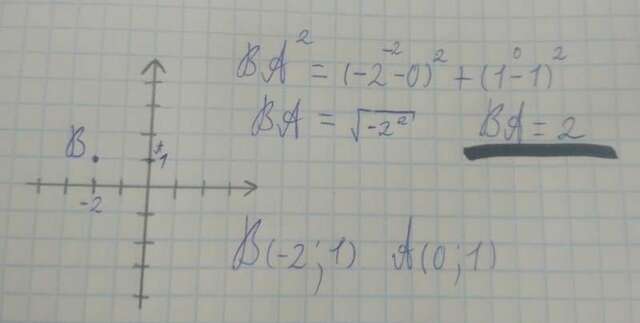 BA² = (-2-0)² + (1-1)²
-2 0
BA = √-2² BA = 2
B 1
-2
B(-2;1) A(0;1)